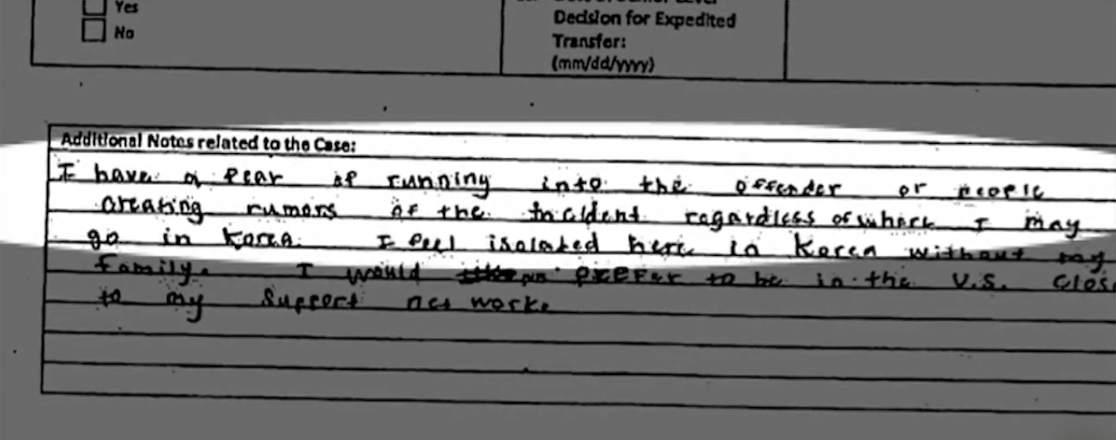 Yes
No
Decision for Expedited
Transfer:
(mm/dd/yyyy)
Additional Notes related to the Case:
I have a fear of running into the offender or people
creating rumors of the incident regardless of where I may
go in Korea. I feel isolated here in Korea without my
family. I would prefer to be in the U.S. close
to my support net work.